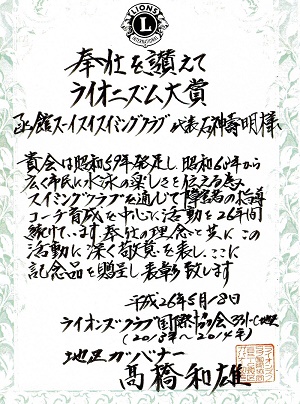 LIONS
L
INTERNATIONAL
奉仕を讃えて
ライオニズム大賞
函館スーイスイスイミングクラブ 代表 石神壽明様
貴会は昭和59年発足し、昭和60年から
広く市民に水泳の楽しさを伝える為、
スイミングクラブを通じて障害者の指導
コーチ育成を中心に活動を26年間
続けています。奉仕の理念と共に この
活動に深く敬意を表し、ここに
記念品を贈呈し表彰致します
平成26年5月18日
ライオンズクラブ国際協会331-C地区
(2013年~2014年)
地区ガバナー
髙橋和雄